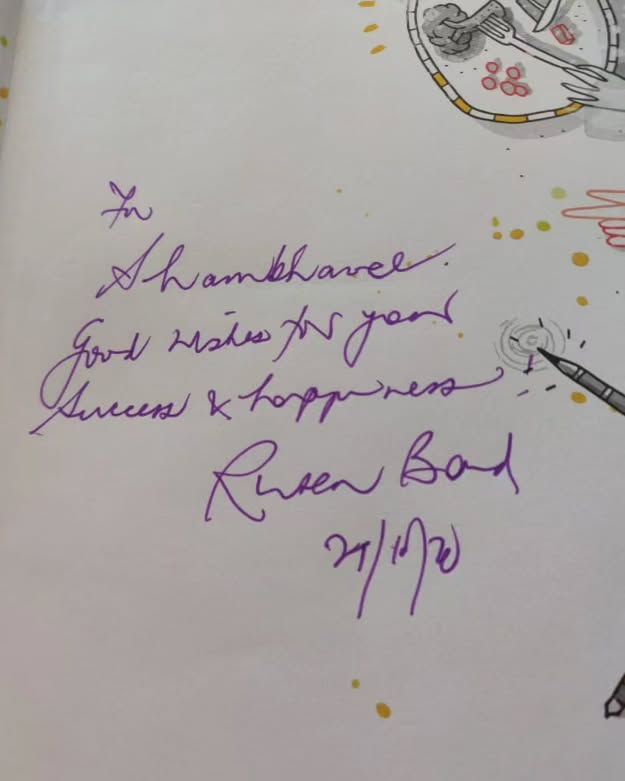 For
Shambhavee.
Good wishes for your
Success & happiness
Ruskin Bond